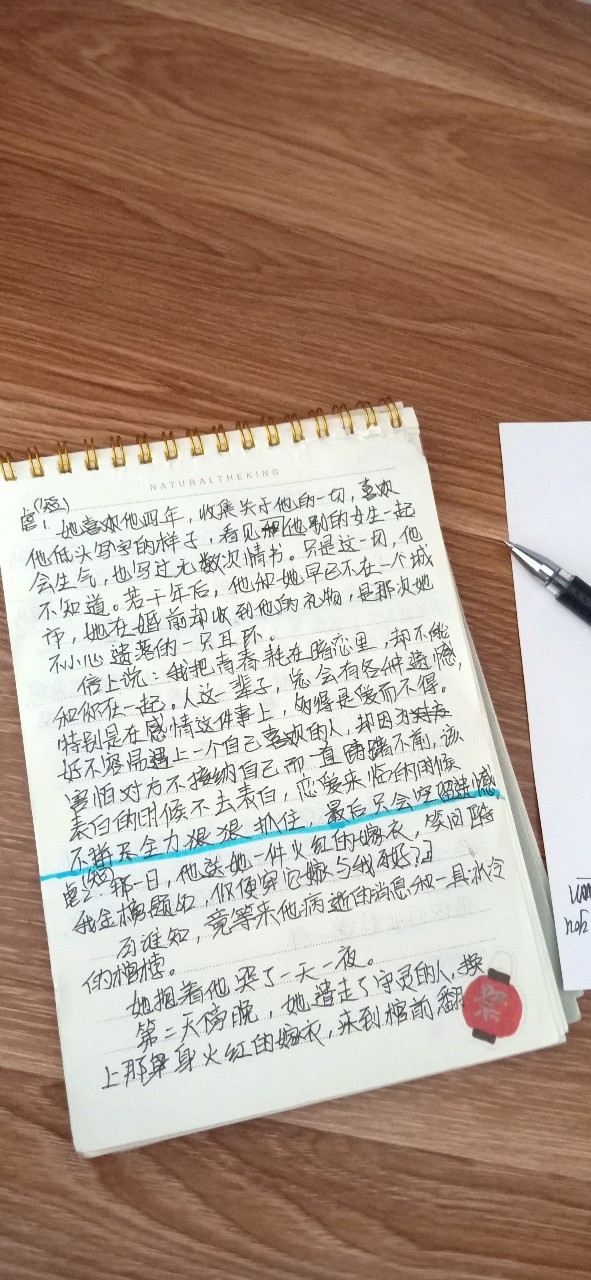 NATURALTHEKING
(短)
虐1 她喜欢他四年，收集关于他的一切，喜欢
他低头写字的样子，看见他和别的女生一起
会生气，也写过无数次情书。只是这一切，他
不知道。若干年后，他和她早已不在一个城
市，她在婚前却收到他的礼物，是那次她
不小心遗落的一只耳环。
信上说：我把青春耗在暗恋里，却不能
和你在一起。人这一辈子，总会有各种遗憾，
特别是在感情这件事上，爱而不得。
好不容易遇上一个自己喜欢的人，却因为
害怕对方不接纳自己而一直踌躇不前，该
表白的时候不去表白，恋爱来临的时候
不拼尽全力狠狠抓住，最后只会空留遗憾
(短)
虐2 那一日，他送她一件火红的嫁衣，笑问
我金榜题名，你便穿它嫁与我可好？」
可谁知，竟等来他病逝的消息和一具冰冷
的棺椁。
她抱着他哭了一天一夜。
第二天傍晚，她遣走了守灵的人，换
上那身火红的嫁衣，来到棺前翻